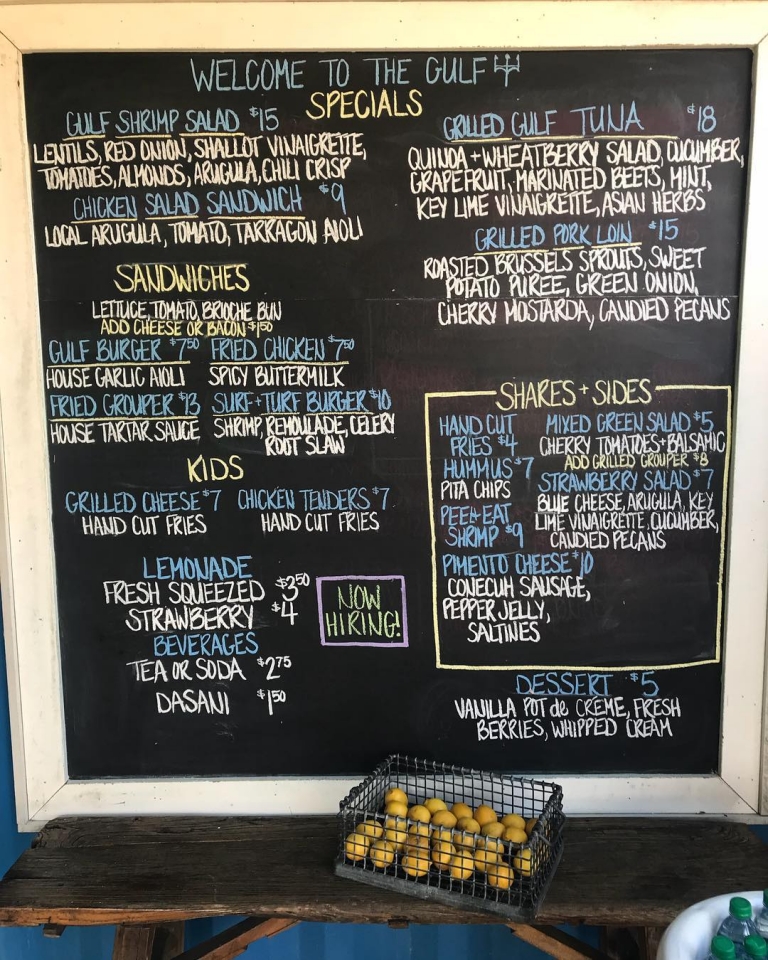 WELCOME TO THE GULF
SPECIALS
GULF SHRIMP SALAD $15
LENTILS, RED ONION, SHALLOT VINAIGRETTE,
TOMATOES, ALMONDS, ARUGULA, CHILI CRISP
CHICKEN SALAD SANDWICH $9
LOCAL ARUGULA, TOMATO, TARRAGON AIOLI
GRILLED GULF TUNA $18
QUINOA + WHEATBERRY SALAD, CUCUMBER,
GRAPEFRUIT, MARINATED BEETS, MINT,
KEY LIME VINAIGRETTE, ASIAN HERBS
GRILLED PORK LOIN $15
ROASTED BRUSSELS SPROUTS, SWEET
POTATO PUREE, GREEN ONION,
CHERRY MOSTARDA, CANDIED PECANS
SANDWICHES
LETTUCE, TOMATO, BRIOCHE BUN
ADD CHEESE OR BACON $1.50
GULF BURGER $7.50 FRIED CHICKEN $7.50
HOUSE GARLIC AIOLI SPICY BUTTERMILK
FRIED GROUPER $13 SURF + TURF BURGER $10
HOUSE TARTAR SAUCE SHRIMP, REMOULADE, CELERY
ROOT SLAW
KIDS
GRILLED CHEESE $7 CHICKEN TENDERS $7
HAND CUT FRIES HAND CUT FRIES
LEMONADE
FRESH SQUEEZED $3.50
STRAWBERRY $4
BEVERAGES
TEA OR SODA $2.75
DASANI $1.50
NOW
HIRING!
SHARES + SIDES
HAND CUT
FRIES $4
HUMMUS $7
PITA CHIPS
PEEL + EAT
SHRIMP $9
PIMENTO CHEESE $10
CONECUH SAUSAGE,
PEPPER JELLY,
SALTINES
MIXED GREEN SALAD $5
CHERRY TOMATOES + BALSAMIC
ADD GRILLED GROUPER $8
STRAWBERRY SALAD $7
BLUE CHEESE, ARUGULA, KEY
LIME VINAIGRETTE, CUCUMBER,
CANDIED PECANS
DESSERT $5
VANILLA POT de CREME, FRESH
BERRIES, WHIPPED CREAM